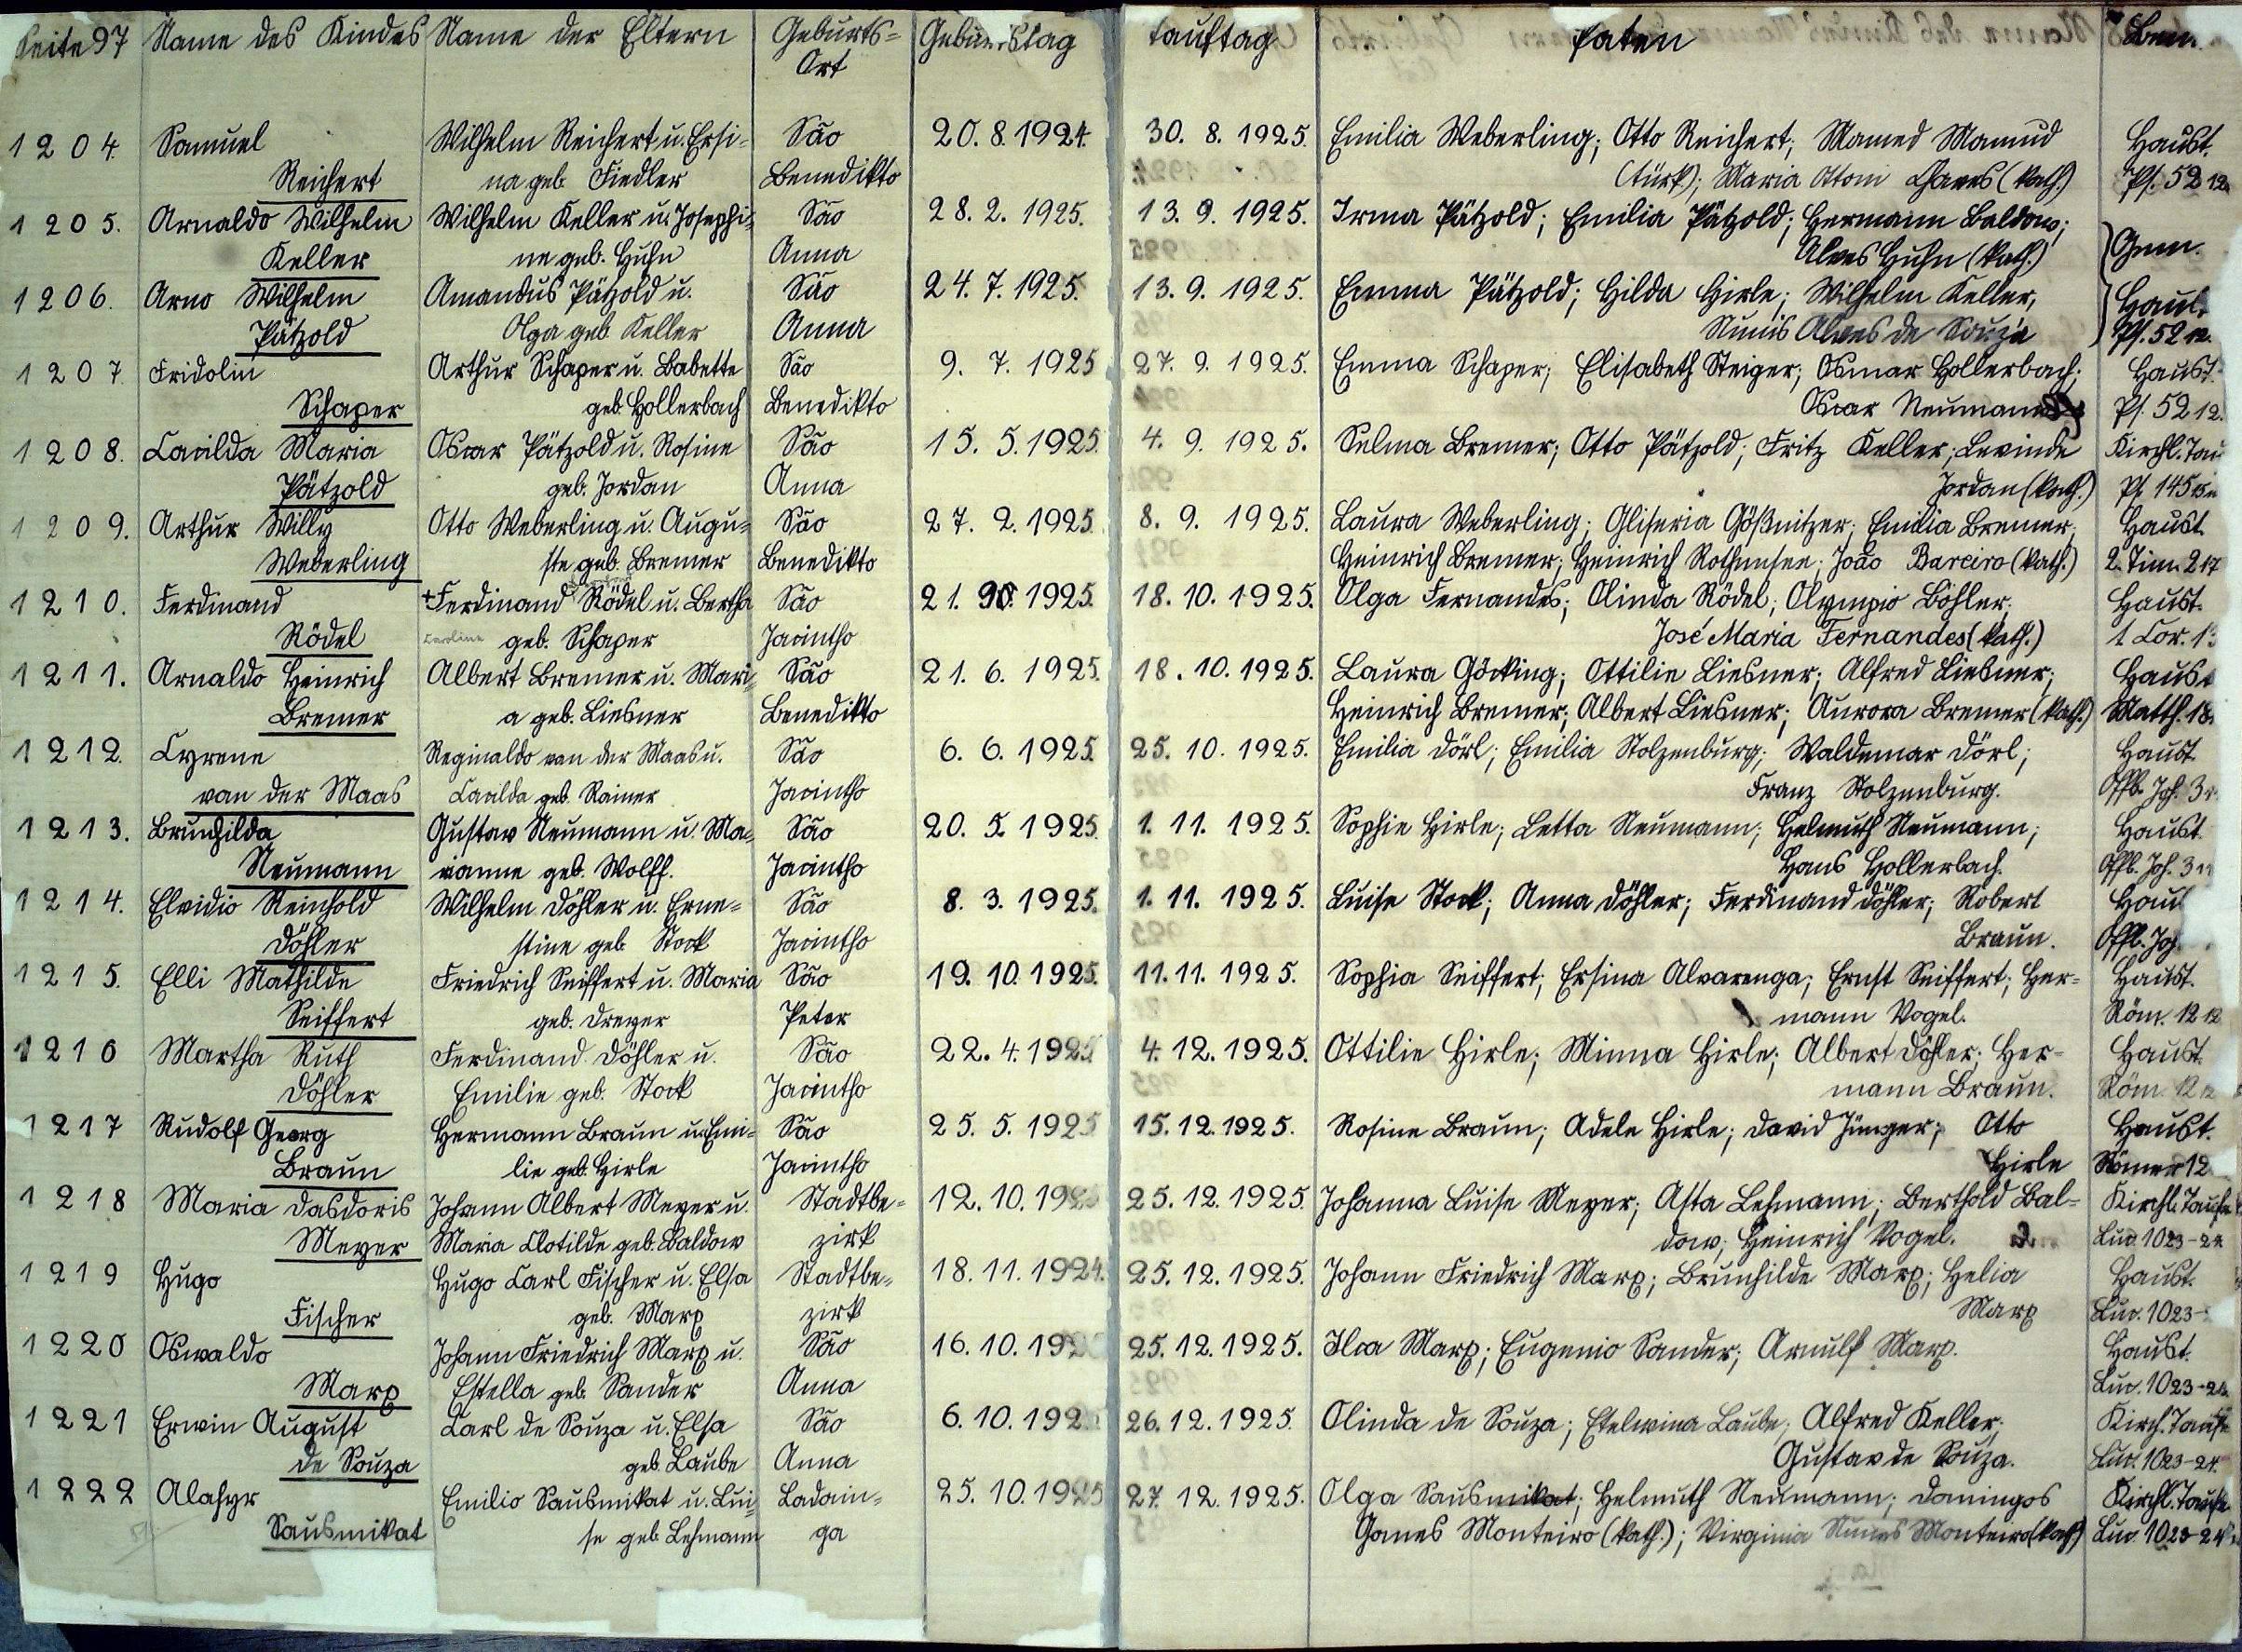 Seite 97 Name des Kindes Name der Eltern Geburts= Geburtstag Tauftag Paten Bem.
Ort
1204. Samuel Wilhelm Reichert u. Ersi- São 20. 8. 1924. 30. 8. 1925. Emilia Weberling; Otto Reichert; Mamed Mamud Haust.
Reichert na geb. Fiedler Benedikto (türk); Maria Ottoni Chaves (kath.) Ps. 52 12.
1205. Arnaldo Wilhelm Wilhelm Keller u. Josephi- São 28. 2. 1925. 13. 9. 1925. Irma Pätzold; Emilia Pätzold; Hermann Baldow;
Keller ne geb. Huhn Anna Alves Huhn (kath.)
1206. Arno Wilhelm Amandus Pätzold u. São 24. 7. 1925. 13. 9. 1925. Emma Pätzold; Hilda Hirle; Wilhelm Keller,
Pätzold Olga geb. Keller Anna Nunis Alves de Souza Ps. 52 12.
1207 Fridolin Arthur Schaper u. Babette São 9. 7. 1925 27. 9. 1925. Emma Schaper; Elisabeth Steiger; Osmar Hollerbach; Haust.
Schaper geb. Hollerbach Benedikto Oscar Neumann Ps. 52 12.
1208. Cacilda Maria Oscar Pätzold u. Rosine São 15. 5. 1925. 4. 9. 1925. Selma Bremer; Otto Pätzold; Fritz Keller; Levinde Kirchl. Tau
Pätzold geb. Jordan Anna Jordan (kath.) Ps. 145
1209. Arthur Willy Otto Weberling u. Augu- São 27. 2. 1925. 8. 9. 1925. Laura Weberling; Gliseria Gößnitzer; Emilia Bremer; Haust.
Weberling ste geb. Bremer Benedikto Heinrich Bremer; Heinrich Rothensee; João Bareiro (kath.) 2. Tim. 2
1210. Ferdinand +Ferdinand Rödel u. Bertha São 21. 1925. 18. 10. 1925. Olga Fernandes; Olinda Rödel; Olympio Böhler; Haust.
Rödel Caroline geb. Schaper Jacintho José Maria Fernandes (kath.) 1 Cor. 1
1211. Arnaldo Heinrich Albert Bremer u. Mari- São 21. 6. 1925. 18. 10. 1925. Laura Göcking; Ottilie Liesner; Alfred Liesner; Haust
Bremer a geb. Liesner Benedikto Heinrich Bremer; Albert Liesner; Aurora Bremer (kath.) Matth. 18.
1212. Cyrene Reginaldo van der Maas u. São 6. 6. 1925. 25. 10. 1925. Emilia Dörl; Emilia Stolzenburg; Waldemar Dörl; Haust.
van der Maas Cacilda geb. Rainer Jacintho Franz Stolzenburg. Offb. Joh. 3
1213. Brunhilda Gustav Neumann u. Ma- São 20. 5. 1925. 1. 11. 1925. Sophie Hirle; Letta Neumann; Helmuth Neumann; Haust.
Neumann rianne geb. Wolff. Jacintho Hans Hollerbach. Offb. Joh. 3 11
1214. Elvidio Reinhold Wilhelm Döhler u. Erne= São 8. 3. 1925. 1. 11. 1925. Luise Stock; Anna Döhler; Ferdinand Döhler; Robert Hau
Döhler stine geb. Stock Jacintho Braun. Offb. Joh.
1215. Elli Mathilde Friedrich Seiffert u. Maria São 19. 10. 1925. 11. 11. 1925. Sophia Seiffert; Ersina Alvarenga; Ernst Seiffert; Her= Haust.
Seiffert geb. Dreyer Peter mann Vogel. Röm. 12 12
1216 Martha Ruth Ferdinand Döhler u. São 22. 4. 1925 4. 12. 1925. Ottilie Hirle; Minna Hirle; Albert Döhler; Her= Haust.
Döhler Emilie geb. Stock Jacintho mann Braun. Röm. 12 12
1217 Rudolf Georg Hermann Braun u. Emi- São 25. 5. 1925 15. 12. 1925. Rosine Braun; Adele Hirle; David Jünger; Otto Haust.
Braun lie geb. Hirle Jacintho Hirle Römer 12
1218 Maria Dasdoris Johann Albert Meyer u. Stadtbe= 12. 10. 1925 25. 12. 1925. Johanna Luise Meyer; Asta Lehmann; Berthold Bal= Kirchl. Taufe
Meyer Maria Clotilde geb. Baldow zirk dow; Heinrich Vogel. Luc. 10 23-24
1219 Hugo Hugo Carl Fischer u. Elsa Stadtbe= 18. 11. 1924. 25. 12. 1925. Johann Friedrich Marx; Brunhilde Marx; Helia Haust.
Fischer geb. Marx zirk Marx Luc. 10 23-
1220 Oswaldo Johann Friedrich Marx u. São 16. 10. 192 25. 12. 1925. Ilca Marx; Eugenio Sander; Arnulf Marx. Haust.
Marx Estella geb. Sander Anna Luc. 10 23-24.
1221 Erwin August Carl de Souza u. Elsa São 6. 10. 192 26. 12. 1925. Olinda de Souza; Etelwina Laube; Alfred Keller; Kirch. Taufe
de Souza geb. Laube Anna Gustav de Souza. Luc. 10 23-24.
1222 Alahyr Emilio Sausmikat u. Lui- Ladain= 25. 10. 1925 27. 12. 1925. Olga Sausmikat; Helmuth Neumann; Domingos Kirchl. Taufe
Sausmikat se geb. Lehmann ga Gomes Monteiro (kath.); Virginia Nunes Monteiro (kath) Luc. 10 23-24